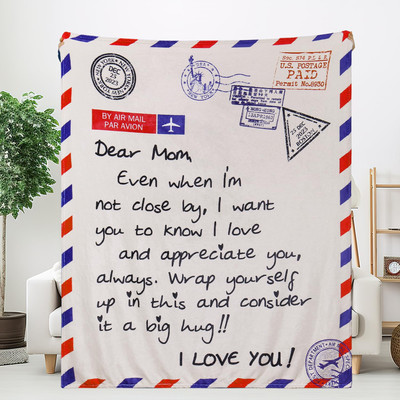 NEW YORK
DEC
23
2023
NEW YORK
U.S. POSTAGE
PAID
Permit No.8930
BY AIR MAIL
PAR AVION
Dear Mom,
Even when i'm
not close by, I want
you to know I love
and appreciate you,
always. Wrap yourself
up in this and consider
it a big hug!!
I LOVE YOU!